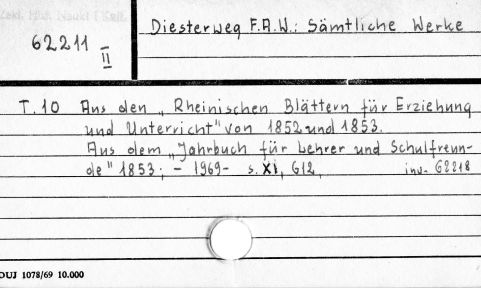 62211
II
Diesterweg F.A.W.: Sämtliche Werke
T.10 Aus den „Rheinischen Blättern für Erziehung
und Unterricht" von 1852 und 1853.
Aus dem „Jahrbuch für Lehrer und Schulfreun-
de" 1853; - 1969- s. XI, 612,
inv. 62218
OUJ 1078/69 10.000